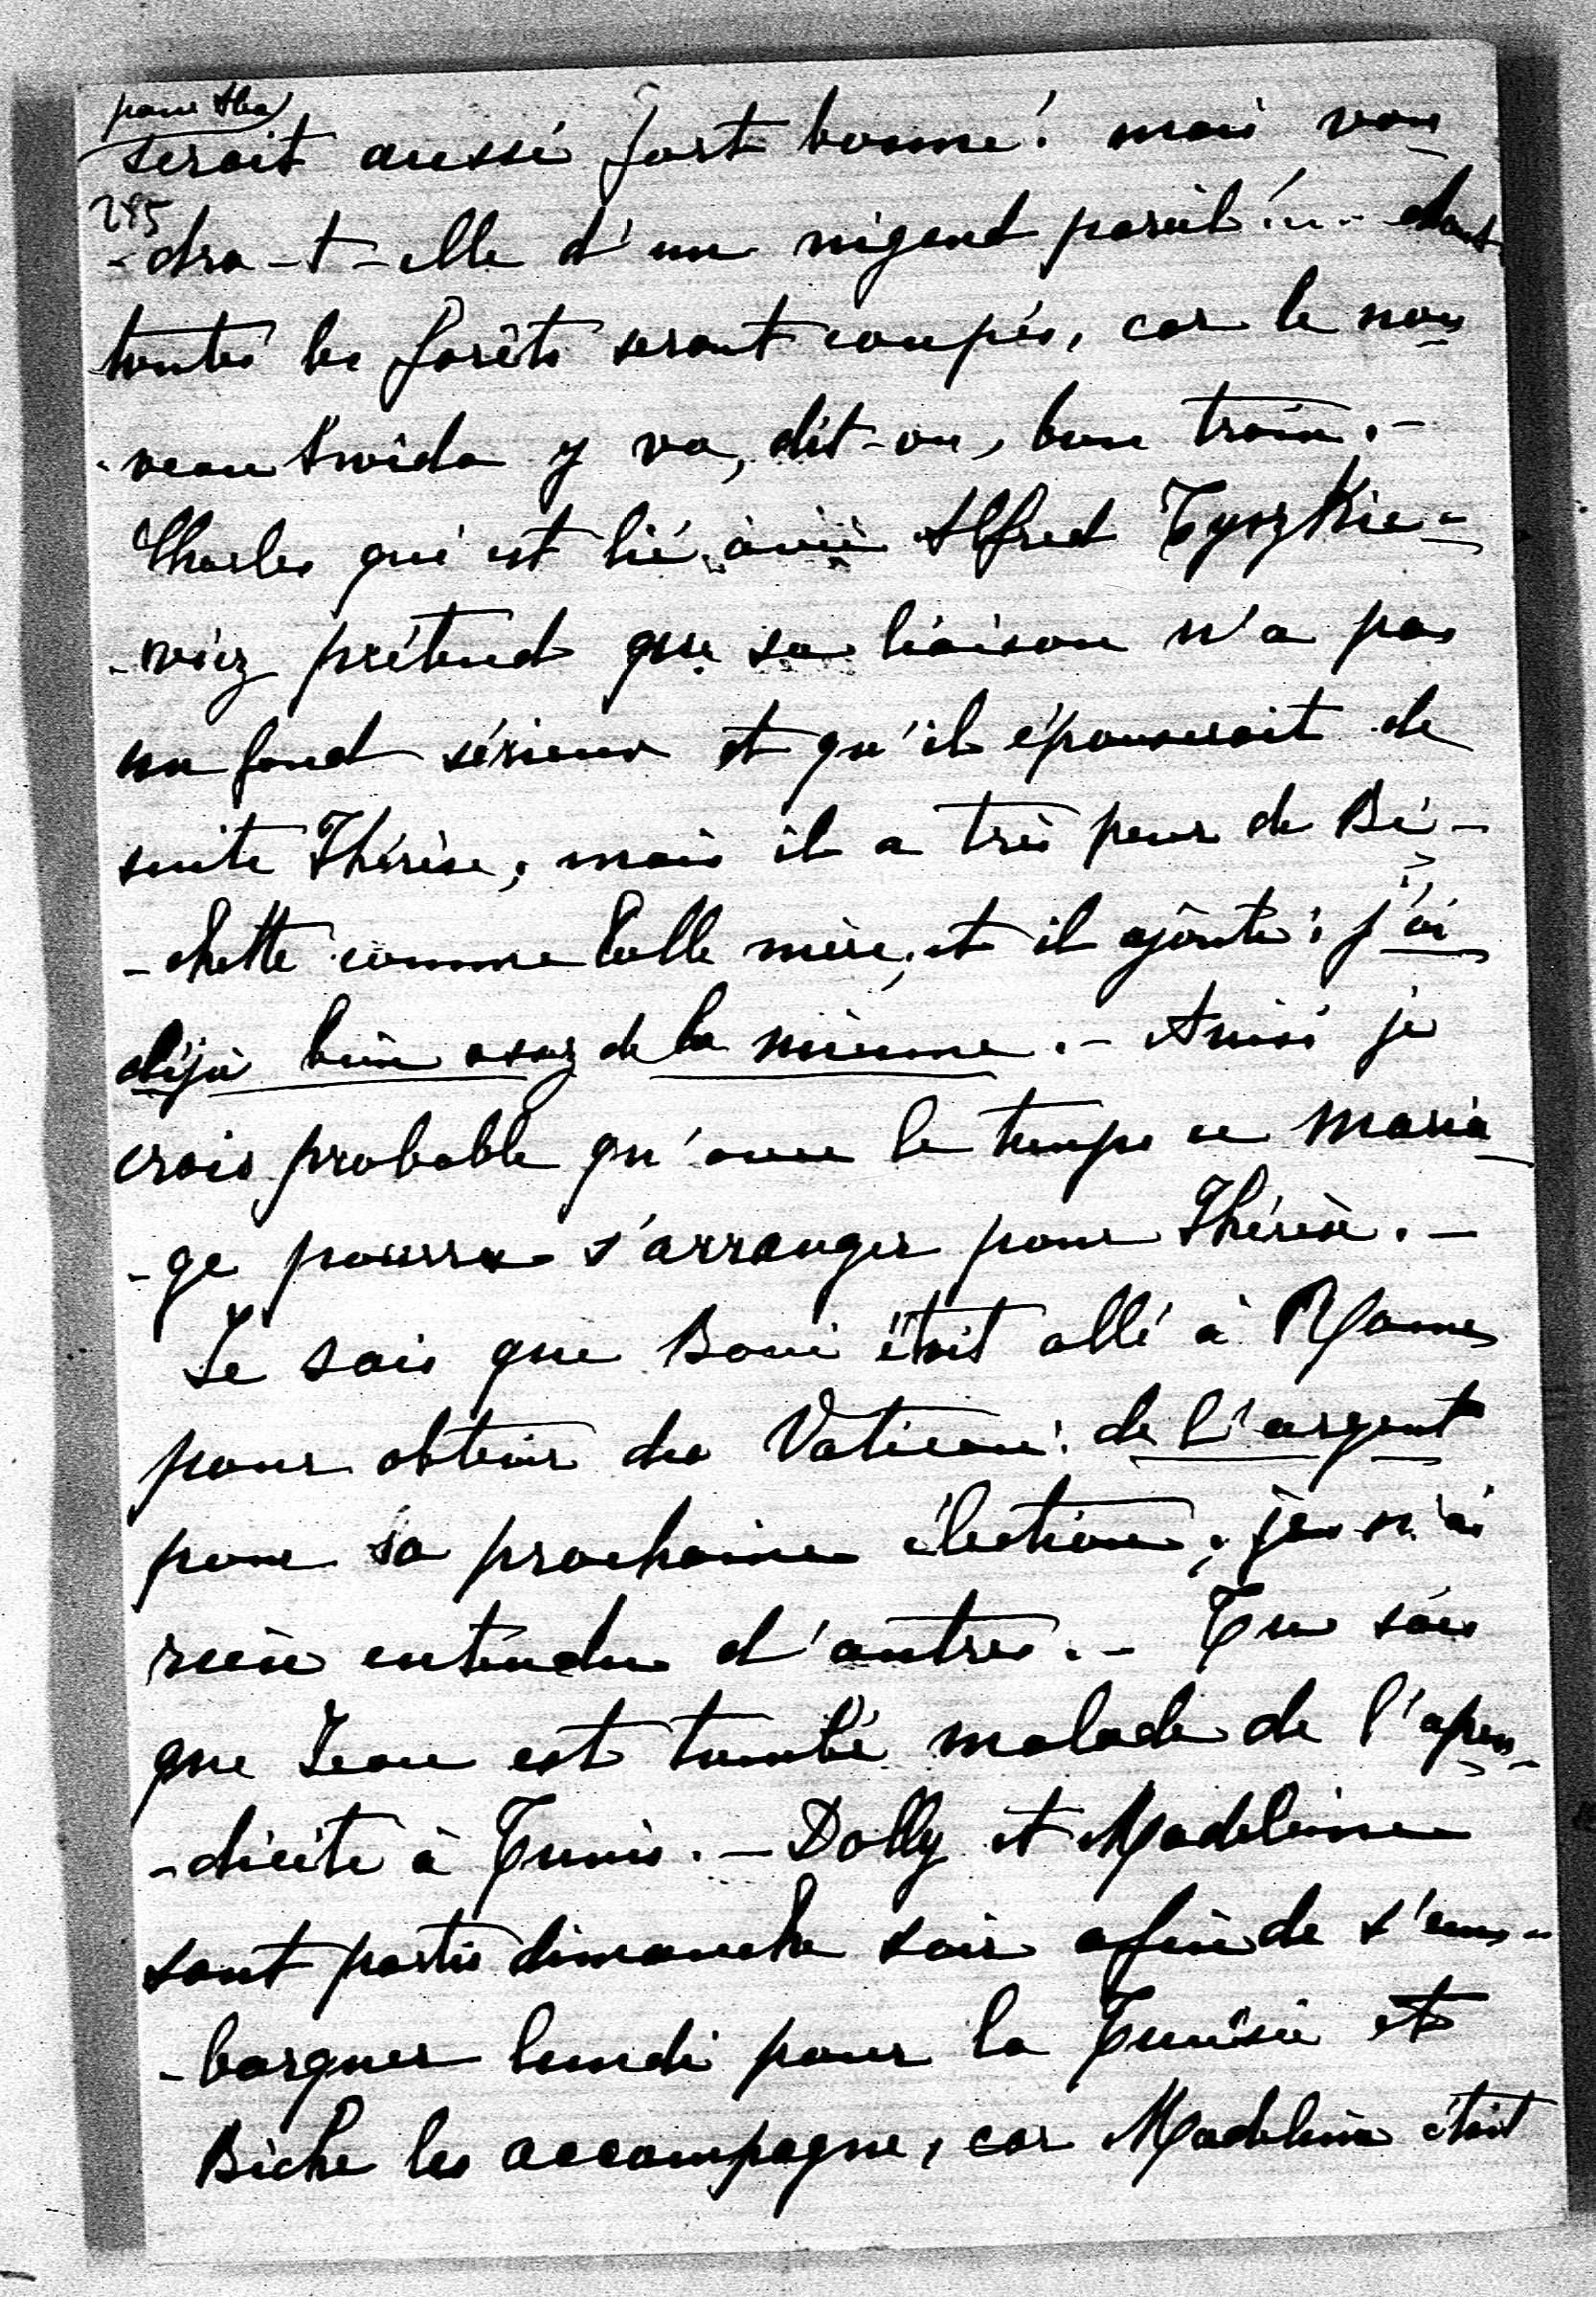 pour Ela
serait aussi fort bonne! mais vou
285
-dra-t-elle d'un nigaud pareil!... dont
toutes les forêts seront coupées, car le nou
-veau Swida y va, dit-on, bon train.-
Charles qui est lié avec Alfred Tyszkie-
-wicz prétend que sa liaison n'a pas
un fond sérieux et qu'il épouserait de
suite Thérèse; mais il a très peur de Bi-
-chette comme belle mère, et il ajoute: j'ai
déjà bien assez de la mienne.- Ainsi je
crois probable qu'avec le temps ce maria
-ge pourra s'arranger pour Thérèse.-
Je sais que Boni était allé à Rome
pour obtenir du Vatican: de l'argent
pour sa prochaine élection; je n'ai
rien entendu d'autres.- Tu sais
que Jean est tombé malade de l'apen-
-dicite à Tunis.- Dolly et Madeleine
sont partis dimanche soir afin de s'em-
-barquer lundi pour la Tunisie et
Biche les accompagne, car Madeleine était